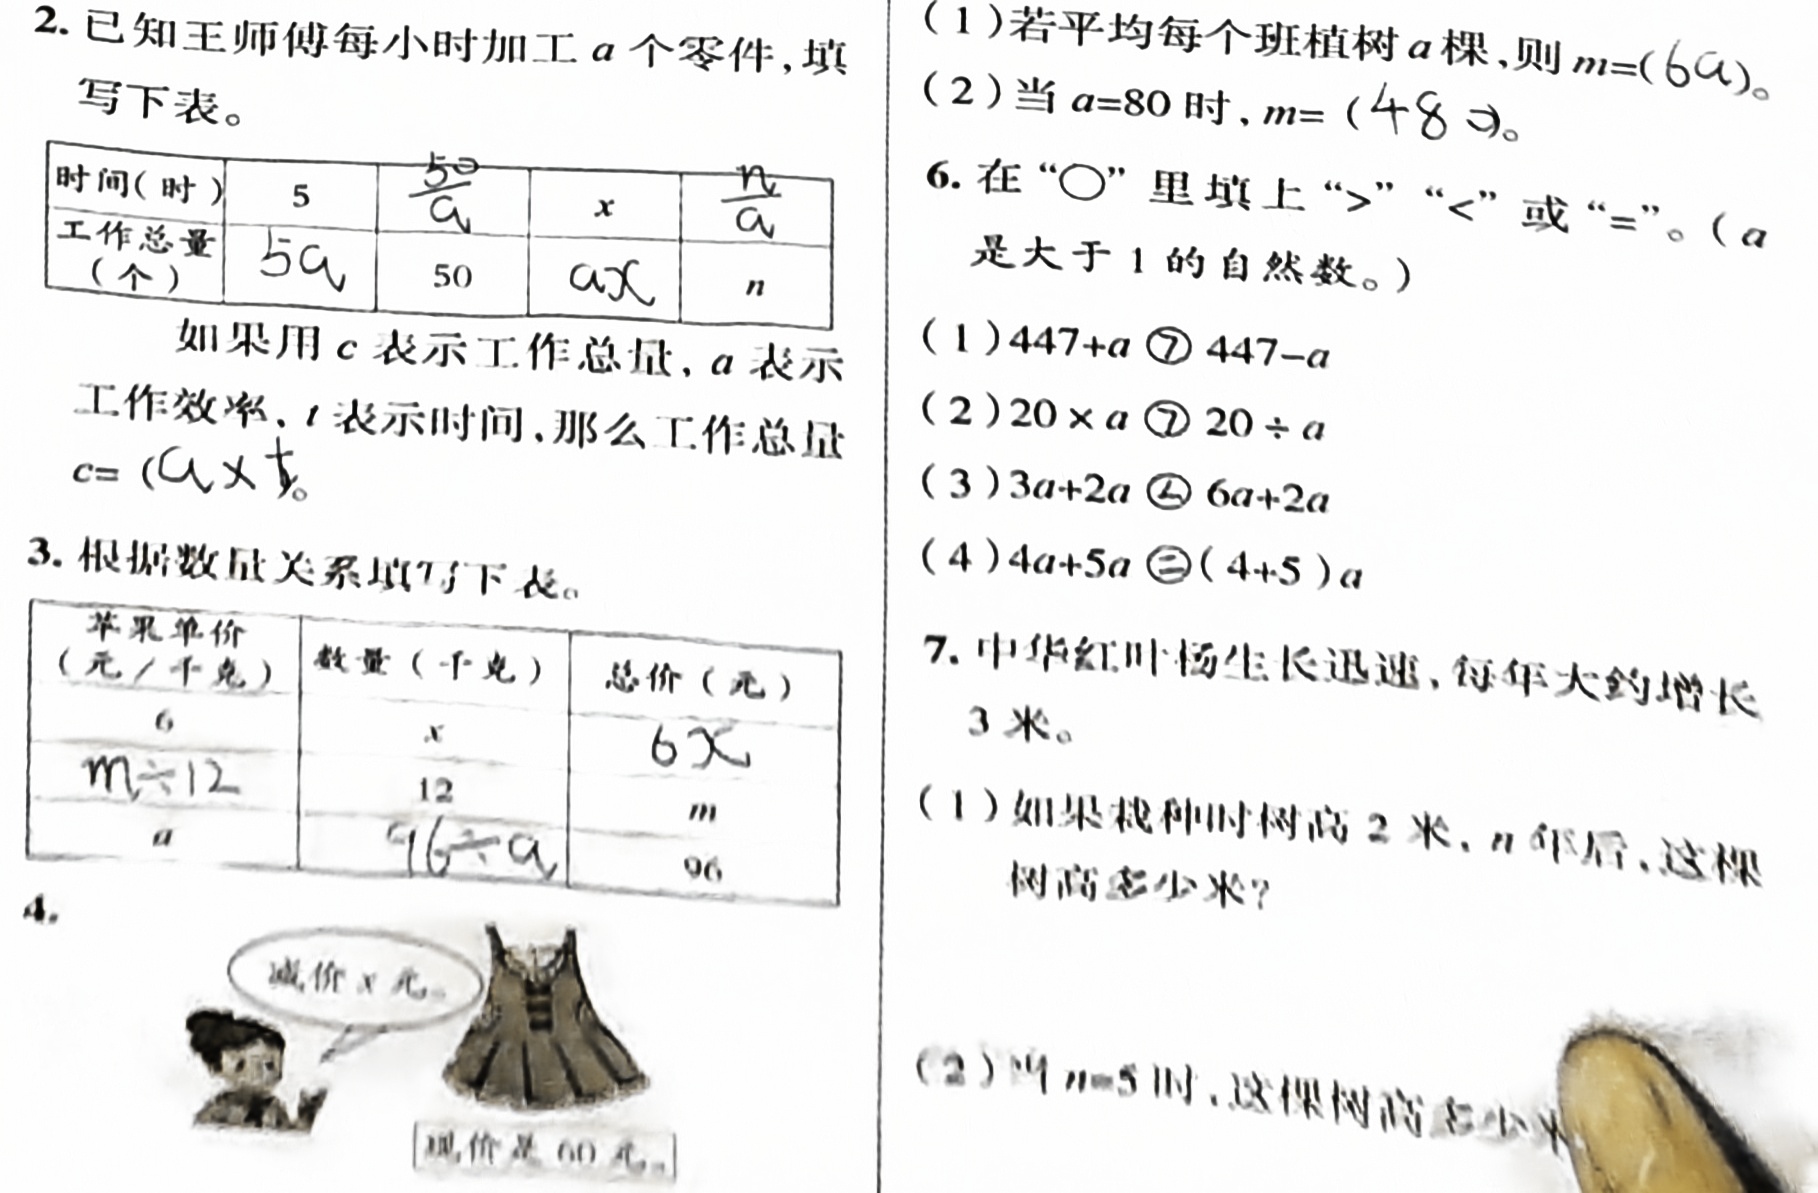 2. 已知王师傅每小时加工 a 个零件,填
写下表。
时间(时) 5 50/a x n/a
工作总量(个) 5a 50 ax n
如果用 c 表示工作总量, a 表示
工作效率, t 表示时间,那么工作总量
c= (a×t)。
3. 根据数量关系填写下表。
苹果单价(元/千克) 数量(千克) 总价(元)
6 x 6x
m÷12 12 m
a 96÷a 96
4.
减价 x 元。
现价是 60 元。
(1)若平均每个班植树 a 棵,则 m=(6a)。
(2)当 a=80 时, m= (480)。
6. 在“○”里填上“>”“<”或“=”。(a
是大于 1 的自然数。)
(1)447+a > 447-a
(2)20×a > 20÷a
(3)3a+2a < 6a+2a
(4)4a+5a = (4+5)a
7. 中华红叶杨生长迅速,每年大约增长
3 米。
(1)如果栽种时树高 2 米, n 年后,这棵
树高多少米?
(2)当 n=5 时,这棵树高多少米